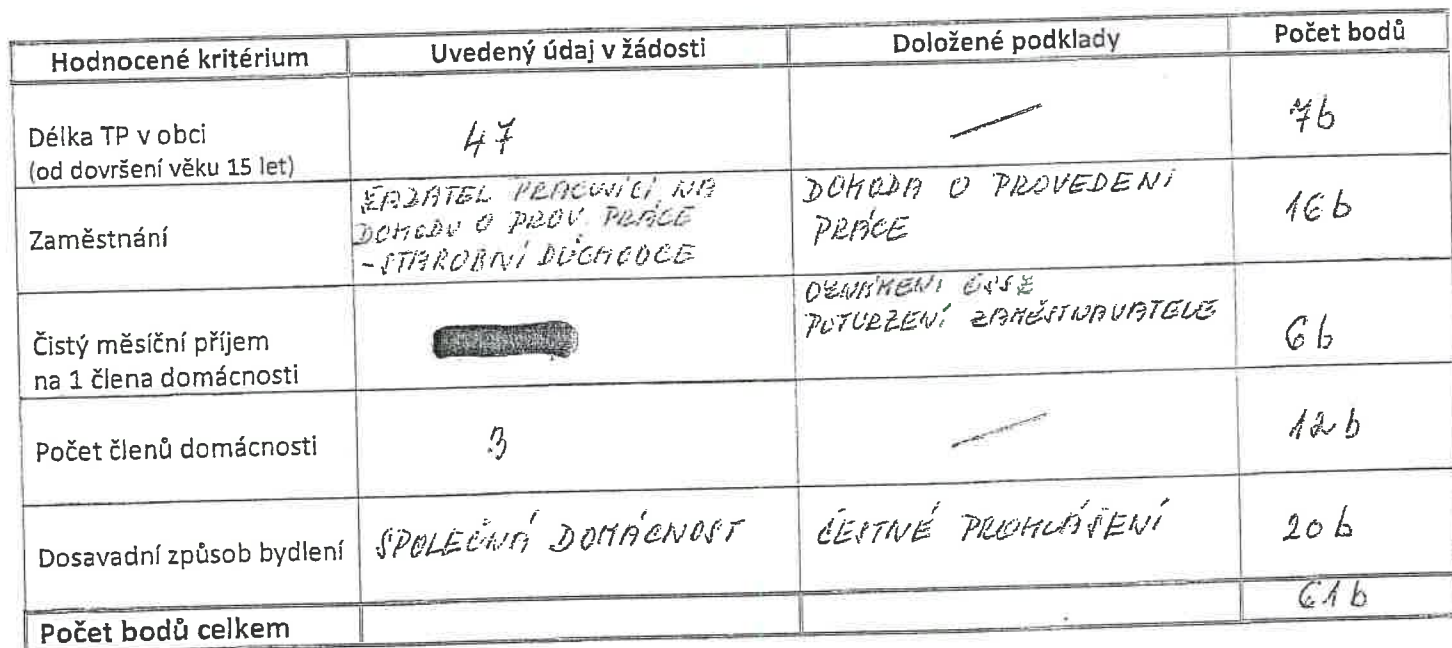 Hodnocené kritérium Uvedený údaj v žádosti Doložené podklady Počet bodů
Délka TP v obci
(od dovršení věku 15 let) 47 7b
Zaměstnání
ŽADATEL PRACUJÍCÍ NA
DOHODU O PROV. PRÁCE
- STAROBNÍ DŮCHODCE
DOHODA O PROVEDENÍ
PRÁCE
16b
Čistý měsíční příjem
na 1 člena domácnosti
OZNÁMENÍ ČSSZ
POTVRZENÍ ZAMĚSTNAVATELE
6b
Počet členů domácnosti 3 12b
Dosavadní způsob bydlení SPOLEČNÁ DOMÁCNOST ČESTNÉ PROHLÁŠENÍ 20b
Počet bodů celkem 61b